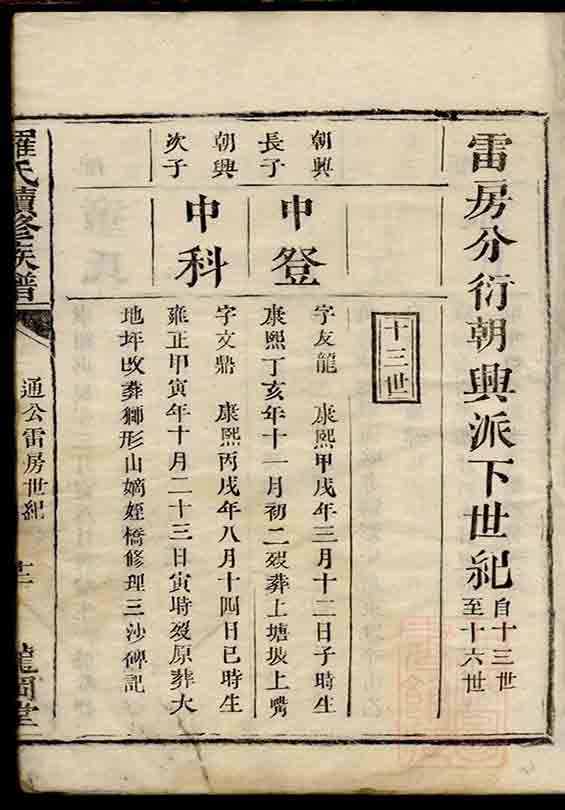 雷房分衍朝興派下世紀 自十三世
至十六世
十三世
朝興
長子
中登
字友龍 康熙甲戌年三月十二日子時生
康熙丁亥年十一月初二歿葬上塘坡上嘴
朝興
次子
中科
字文鼎 康熙丙戌年八月十四日巳時生
雍正甲寅年十月二十三日寅時歿原葬大
地坪改葬獅形山嫡姪橋修理三沙碑記
羅氏續修族譜
通公雷房世紀